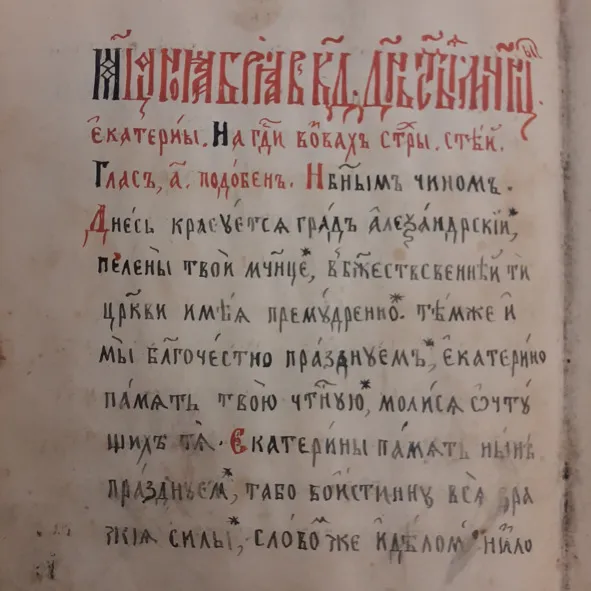 Мц҃а ноѧбрїа в к҃д. дн҃ь ст҃ы́ѧ мч҃нцы
Є҆катери́ны. На гд҇и во́звахъ стⷯры. ст҃ѣ́й.
Гласъ, а҃. подо́бенъ. Нбⷭ҇ныⷨмъ чино́мъ.
Дне́сь красꙋ́етсѧ гра́дъ а҆леѯа́ндрскїй,*
пелены̀ твоѝ мч҃нце, в бж҃ествсвеннѣ́й тѝ
цр҃кви имѣ́ѧ премꙋ́дренно.* тѣ́мже и҆
мы̀ бл҃гоче́стно пра́зднꙋемъ,* є҆катери́но
па́мѧть твою̀ чⷭ҇тнꙋю,* моли́сѧ ѽ чтꙋ́
щихъ тѧ̀. Є҆катери́ны па́мѧть ны́нѣ
пра́зднꙋем,* та́бо вои́стиннꙋ всѧ̀ вра
жїѧ си́лы,* сло́воⷨ же и҆ дѣ́лоⷨ ни́ло